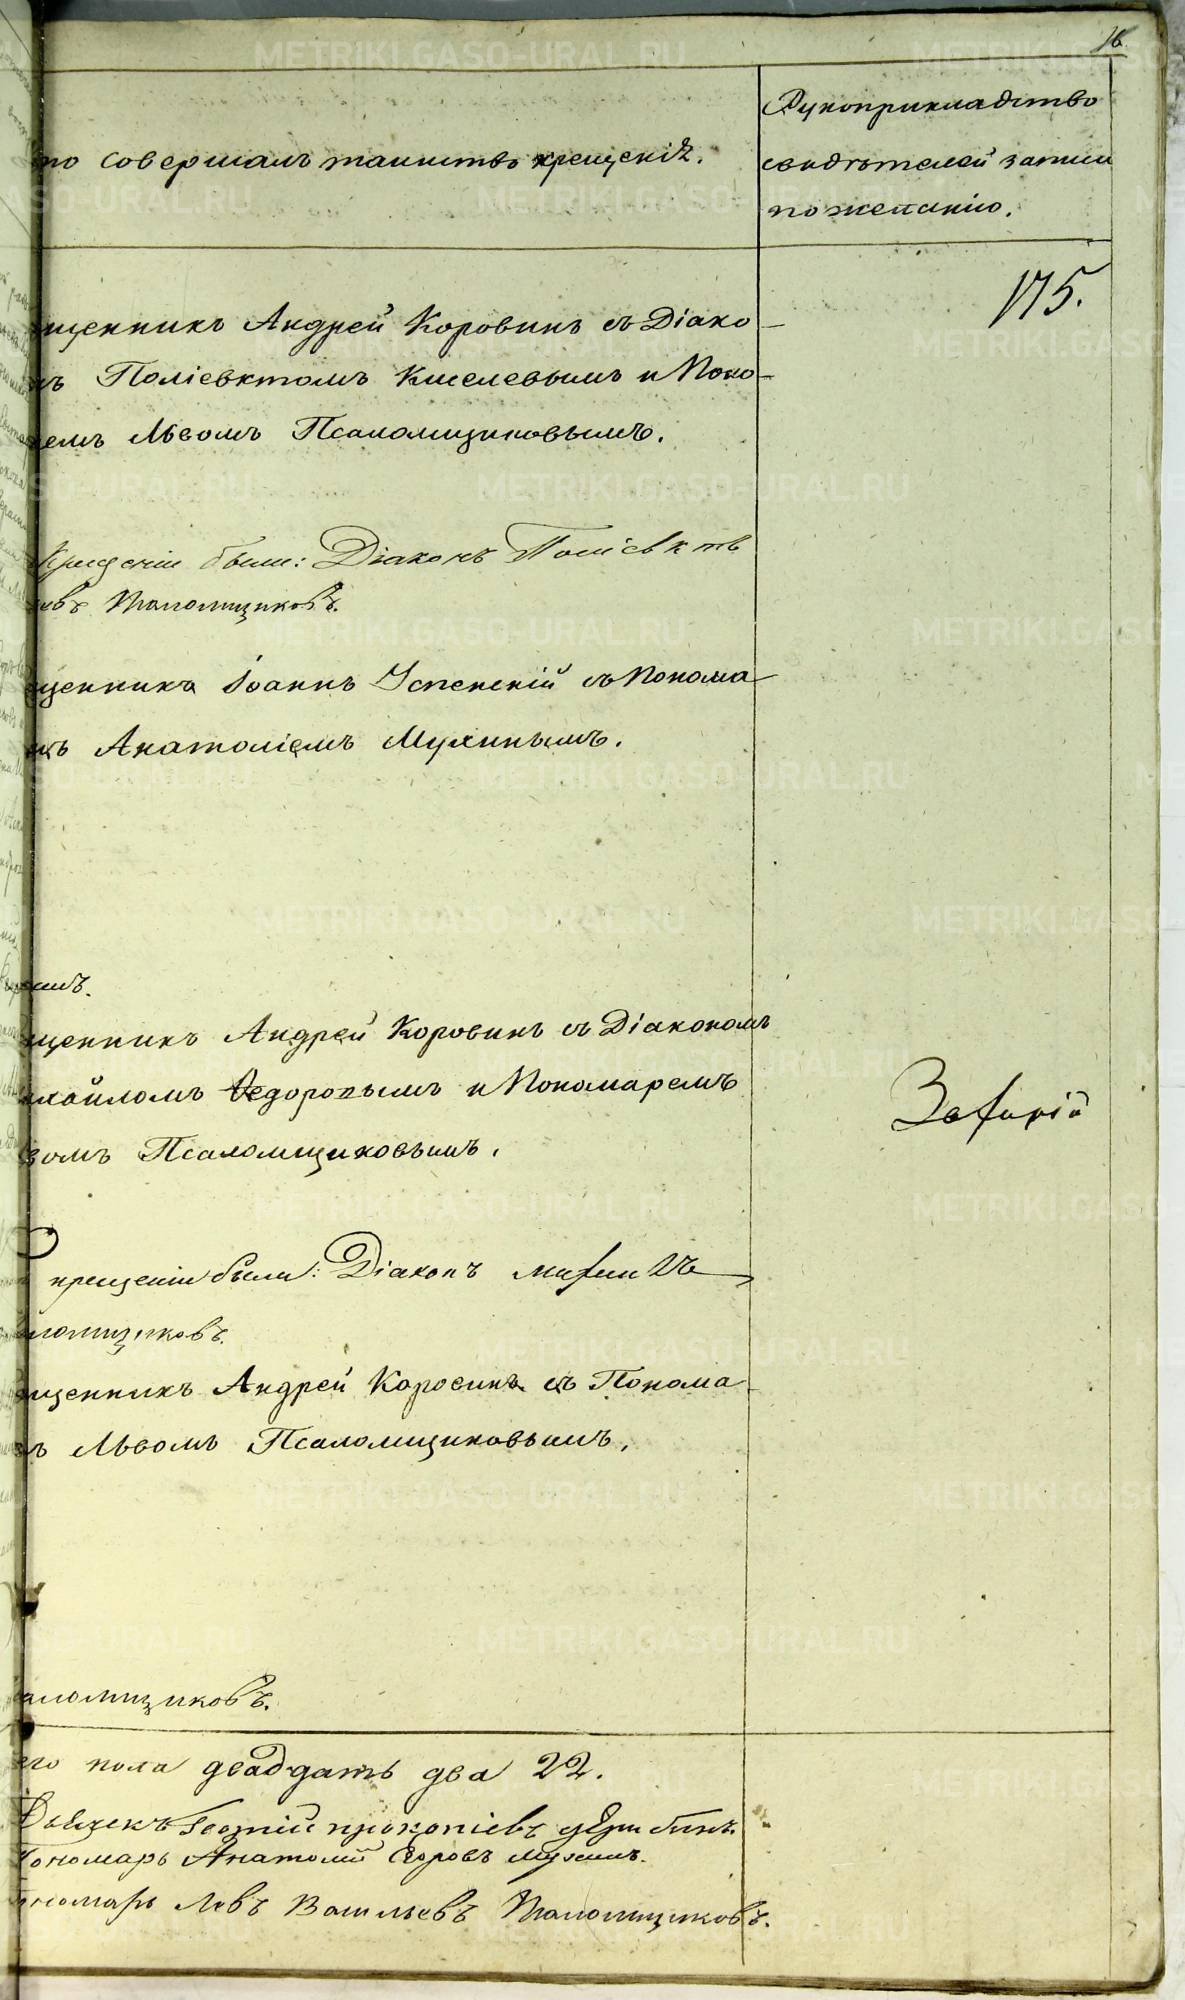 16.
то совершалъ таинство крещенія.
Рукоприкладство
свидѣтелей записи
по желанію.
175.
щенникъ Андрей Коровинъ съ Діако-
ъ Поліевктомъ Киселевымъ и Поно-
емъ Львомъ Псаломщиковымъ.
Крещеніи были: Діаконъ Поліевктъ
евъ Псаломщиковъ.
щенникъ Іоаннъ Успенскій съ Понома-
ъ Анатоліемъ Мухинымъ.
щенникъ Андрей Коровинъ съ Діакономъ
хайломъ Ѳедоровымъ и Пономаремъ
вомъ Псаломщиковымъ.
крещеніи были: Діаконъ
ломщиковъ.
щенникъ Андрей Коровинъ съ Понома-
ъ Львомъ Псаломщиковымъ.
аломщиковъ.
его пола двадцать два 22.
Дьячекъ Георгій Прокопіевъ
Пономарь Анатолій Егоровъ Мухинъ.
ономарь Левъ Васильевъ Псаломщиковъ.
METRIKI.GASO-URAL.RU